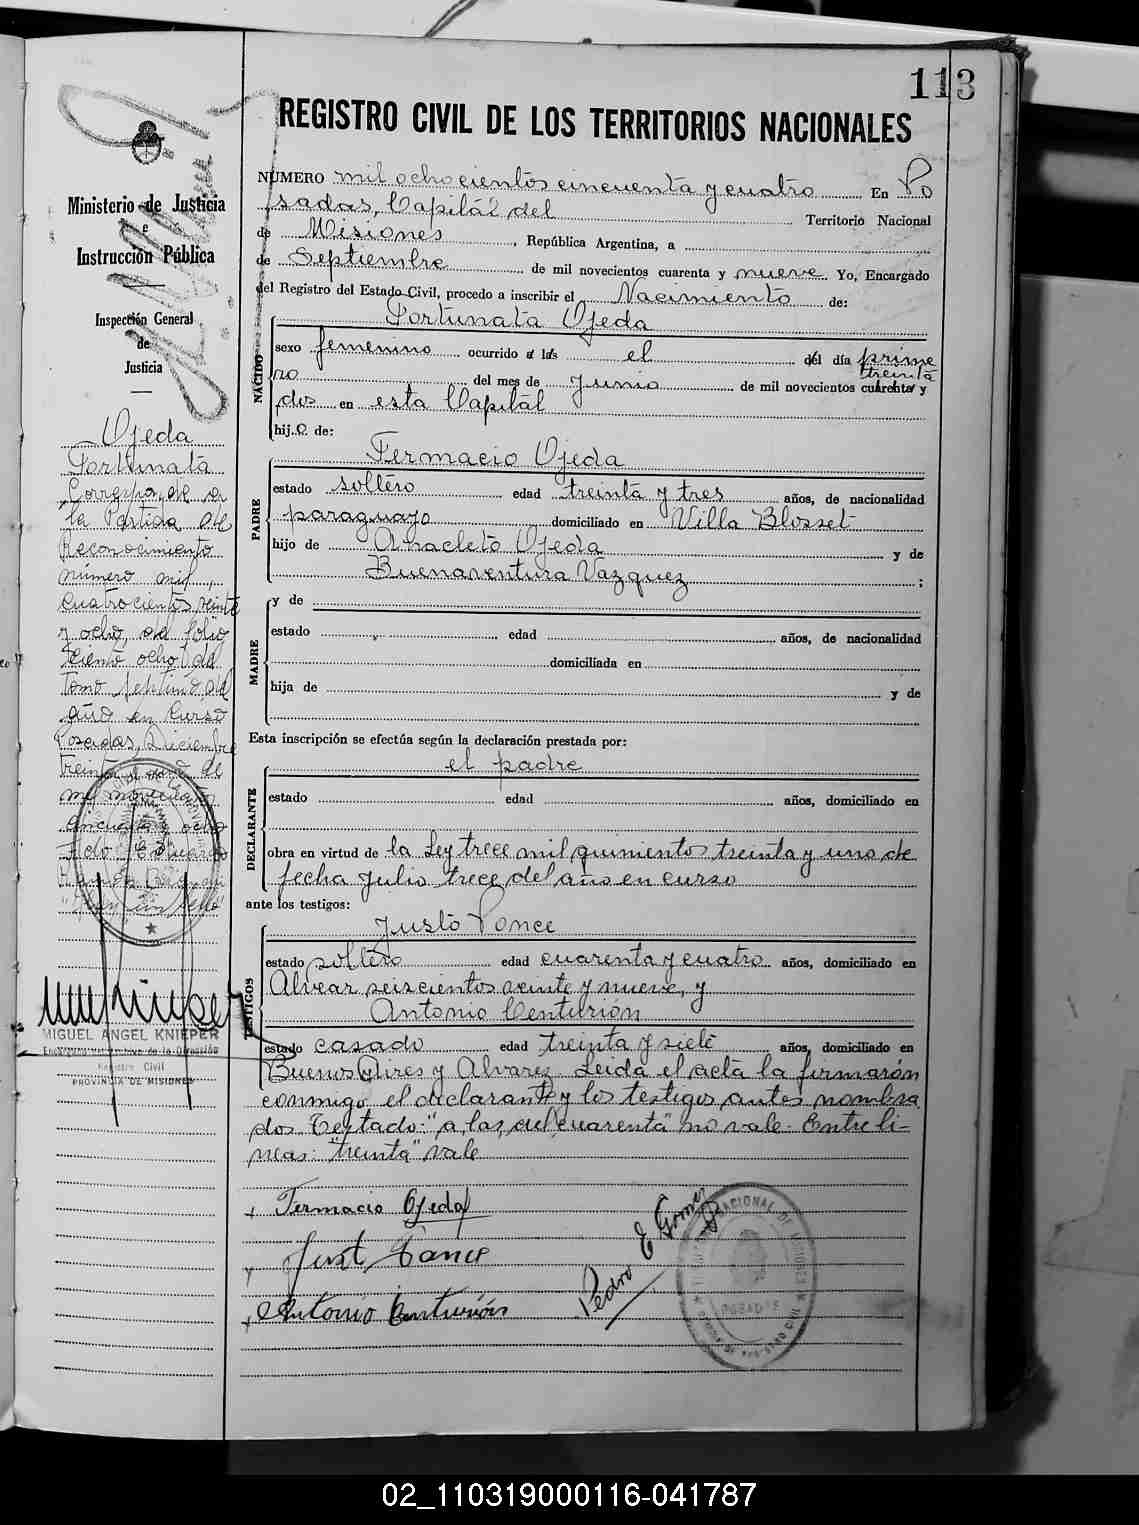 113
REGISTRO CIVIL DE LOS TERRITORIOS NACIONALES
Ministerio de Justicia
e
Instrucción Pública
Inspección General
de
Justicia
Ojeda
Fortunata
Corresponde a
la Partida de
Reconocimiento
número mil
cuatrocientos veinte
y ocho, del folio
ciento ocho del
tomo septimo del
año en curso
Posadas, Diciembre
treinta y uno de
mil novecientos
cincuenta y ocho
MIGUEL ANGEL KNIEPER
Registro Civil
PROVINCIA DE MISIONES
NÚMERO mil ochocientos cincuenta y cuatro En Po
sadas, Capital del Territorio Nacional
de Misiones, República Argentina, a
de Septiembre de mil novecientos cuarenta y nueve Yo, Encargado
del Registro del Estado Civil, procedo a inscribir el Nacimiento de:
NACIDO
Fortunata Ojeda
sexo femenino ocurrido a las el del día prime
treinta
ro del mes de Junio de mil novecientos cuarenta y
dos en esta Capital
hij.a de:
PADRE
Fermacio Ojeda
estado soltero edad treinta y tres años, de nacionalidad
paraguayo domiciliado en Villa Blosset
hijo de Anacleto Ojeda y de
Buenaventura Vazquez ;
MADRE
y de
estado edad años, de nacionalidad
domiciliada en
hija de y de
Esta inscripción se efectúa según la declaración prestada por:
DECLARANTE
el padre
estado edad años, domiciliado en
obra en virtud de la Ley trece mil quinientos treinta y uno de
fecha Julio trece del año en curso
ante los testigos:
TESTIGOS
Justo Ponce
estado soltero edad cuarenta y cuatro años, domiciliado en
Alvear seiscientos veinte y nueve, y
Antonio Centurión
estado casado edad treinta y siete años, domiciliado en
Buenos Aires y Alvarez. Leida el acta la firmarón
conmigo el declarante y los testigos antes nombra
dos. Testado: "a, las, del, cuarenta" no vale. Entre li-
neas: "treinta" vale
Fermacio Ojeda
Just Ponce
Antonio Centurión
Pedro E Gomez
POSADAS
02_110319000116-041787